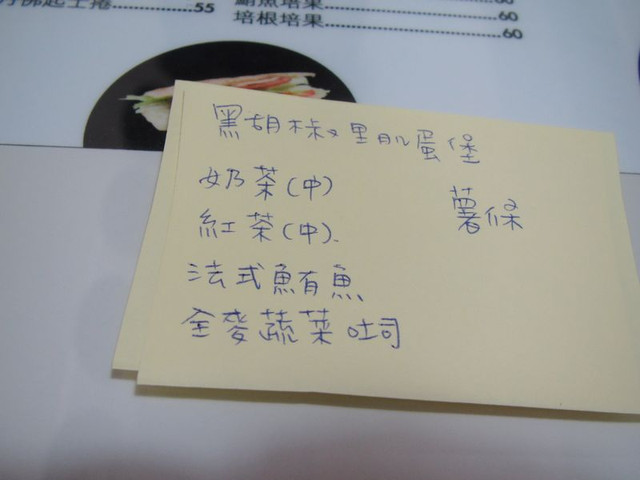 起士捲 55
鮪魚培果 60
培根培果 60
黑胡椒里肌蛋堡
奶茶(中)
薯條
紅茶(中).
法式鮪魚
全麥蔬菜吐司